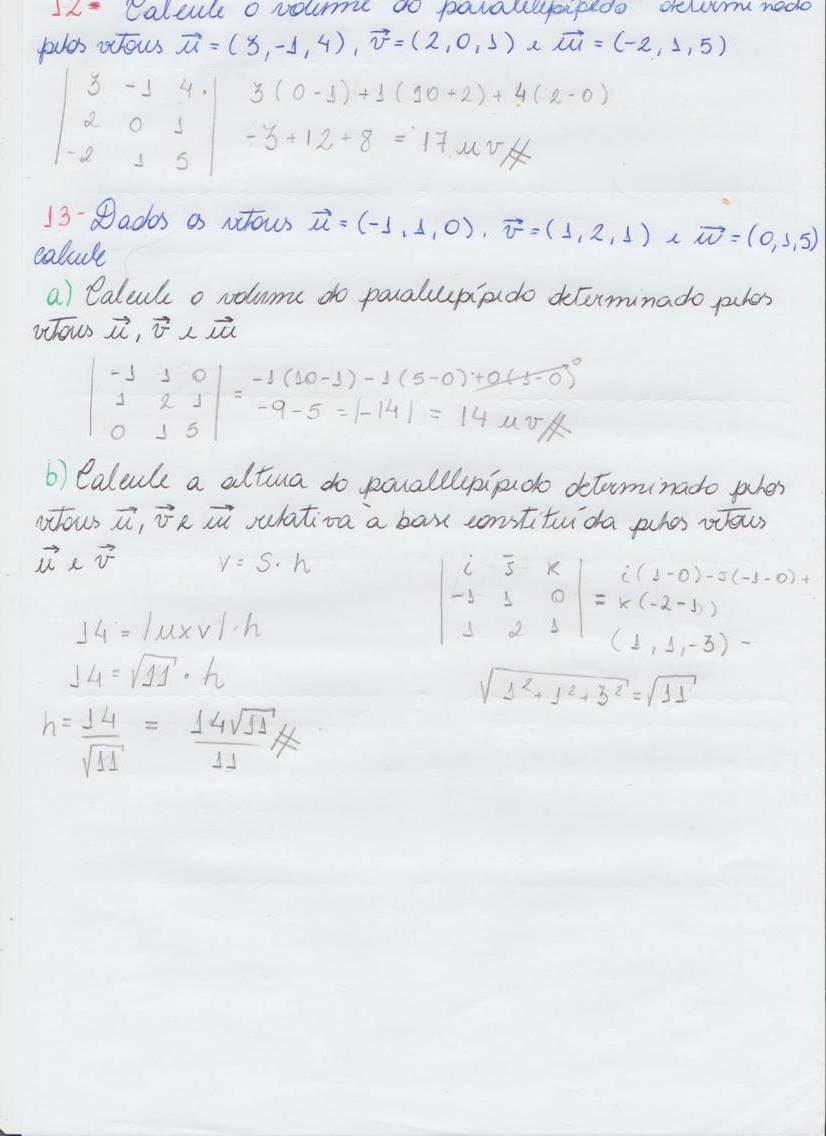 12- Calcule o volume do paralelepípedo determinado
pelos vetores u⃗ = (3,-1,4), v⃗ = (2,0,1) e w⃗ = (-2,1,5)
| 3 -1 4. | 3(0-1)+1(10+2)+4(2-0)
| 2 0 1 |
| -2 1 5 | -3+12+8 = 17 uv//
13- Dados os vetores u⃗ = (-1,1,0), v⃗ = (1,2,1) e w⃗ = (0,1,5)
calcule
a) Calcule o volume do paralelepípedo determinado pelos
vetores u⃗, v⃗ e w⃗
| -1 1 0 | = -1(10-1)-1(5-0)+0(1-0)⁰
| 1 2 1 | -9-5 = |-14| = 14 uv//
| 0 1 5 |
b) Calcule a altura do paralelepípedo determinado pelos
vetores u⃗, v⃗ e w⃗ relativa à base constituída pelos vetores
u⃗ e v⃗ V = S·h
| i j k | i(1-0)-j(-1-0)+
| -1 1 0 | = k(-2-1)
| 1 2 1 | (1,1,-3) -
14 = |uxv|·h
14 = √11 · h √1²+1²+3² = √11
h = 14/√11 = 14√11/11 //